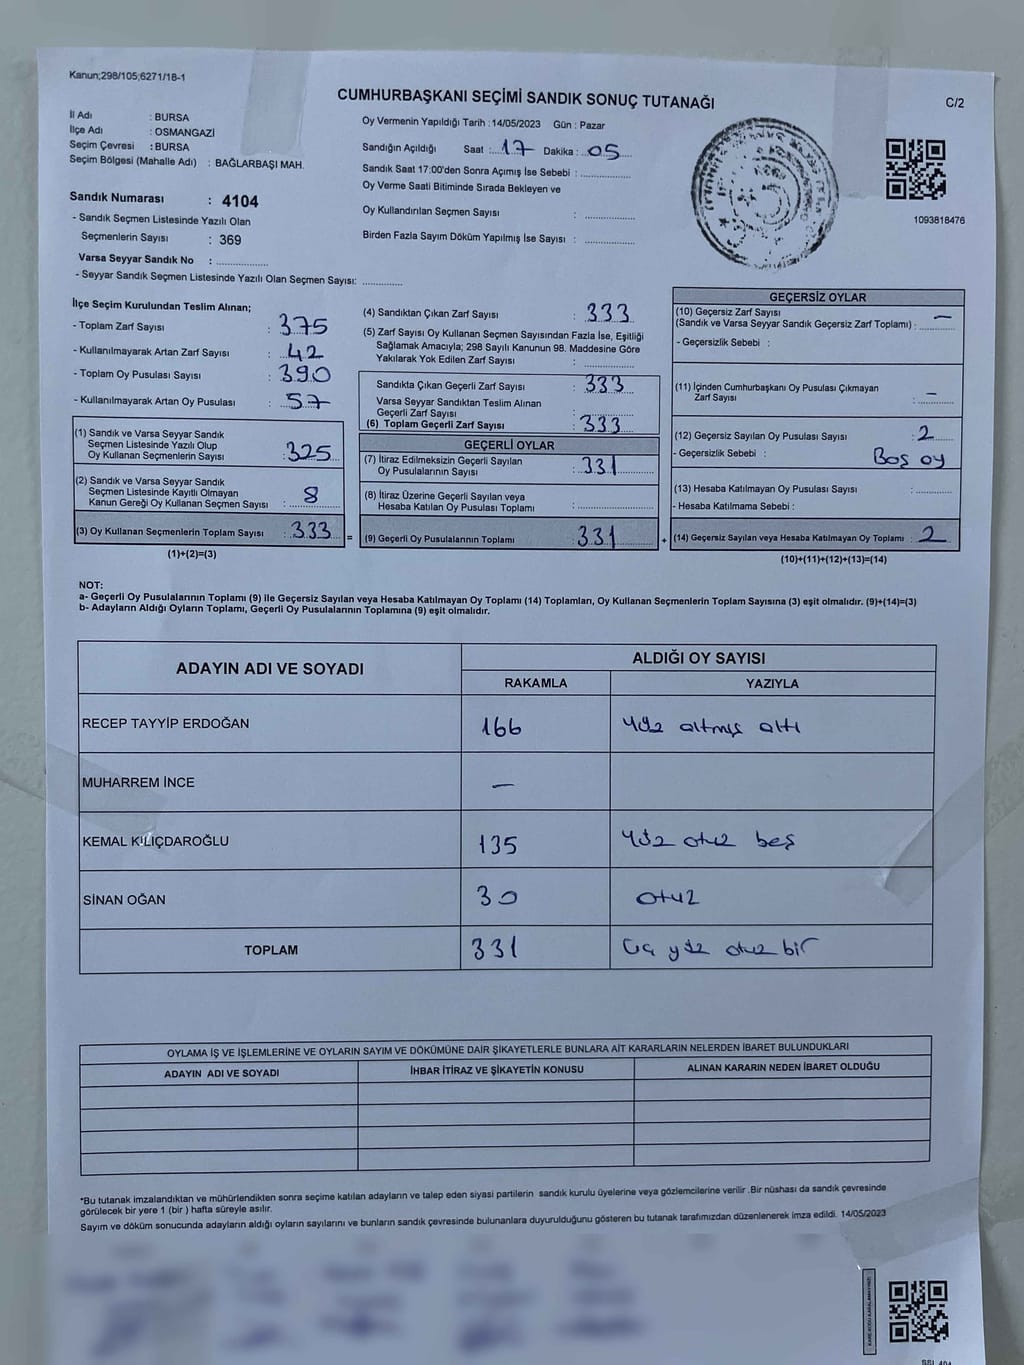 Kanun;298/105;6271/18-1
CUMHURBAŞKANI SEÇİMİ SANDIK SONUÇ TUTANAĞI
C/2
İl Adı : BURSA
İlçe Adı : OSMANGAZİ
Seçim Çevresi : BURSA
Seçim Bölgesi (Mahalle Adı) : BAĞLARBAŞI MAH.
Sandık Numarası : 4104
- Sandık Seçmen Listesinde Yazılı Olan
Seçmenlerin Sayısı : 369
Varsa Seyyar Sandık No : ................
- Seyyar Sandık Seçmen Listesinde Yazılı Olan Seçmen Sayısı: ............
Oy Vermenin Yapıldığı Tarih : 14/05/2023 Gün : Pazar
Sandığın Açıldığı Saat : 17 Dakika : 05
Sandık Saat 17:00'den Sonra Açımış İse Sebebi : ...............
Oy Verme Saati Bitiminde Sırada Bekleyen ve
Oy Kullandırılan Seçmen Sayısı : ...............
Birden Fazla Sayım Döküm Yapılmış İse Sayısı : ...............
1093818476
İlçe Seçim Kurulundan Teslim Alınan;
- Toplam Zarf Sayısı : 375
- Kullanılmayarak Artan Zarf Sayısı : 42
- Toplam Oy Pusulası Sayısı : 390
- Kullanılmayarak Artan Oy Pusulası : 57
(1) Sandık ve Varsa Seyyar Sandık
Seçmen Listesinde Yazılı Olup
Oy Kullanan Seçmenlerin Sayısı : 325
(2) Sandık ve Varsa Seyyar Sandık
Seçmen Listesinde Kayıtlı Olmayan
Kanun Gereği Oy Kullanan Seçmen Sayısı : 8
(3) Oy Kullanan Seçmenlerin Toplam Sayısı : 333 =
(1)+(2)=(3)
(4) Sandıktan Çıkan Zarf Sayısı : 333
(5) Zarf Sayısı Oy Kullanan Seçmen Sayısından Fazla İse, Eşitliği
Sağlamak Amacıyla; 298 Sayılı Kanunun 98. Maddesine Göre
Yakılarak Yok Edilen Zarf Sayısı : ...............
Sandıkta Çıkan Geçerli Zarf Sayısı : 333
Varsa Seyyar Sandıktan Teslim Alınan
Geçerli Zarf Sayısı : ...............
(6) Toplam Geçerli Zarf Sayısı : 333
GEÇERLİ OYLAR
(7) İtiraz Edilmeksizin Geçerli Sayılan
Oy Pusulalarının Sayısı : 331
(8) İtiraz Üzerine Geçerli Sayılan veya
Hesaba Katılan Oy Pusulası Toplamı : ...............
(9) Geçerli Oy Pusulalarının Toplamı : 331 +
GEÇERSİZ OYLAR
(10) Geçersiz Zarf Sayısı
(Sandık ve Varsa Seyyar Sandık Geçersiz Zarf Toplamı) : —
- Geçersizlik Sebebi :
(11) İçinden Cumhurbaşkanı Oy Pusulası Çıkmayan
Zarf Sayısı : -
(12) Geçersiz Sayılan Oy Pusulası Sayısı : 2
- Geçersizlik Sebebi : Boş oy
(13) Hesaba Katılmayan Oy Pusulası Sayısı : ............
- Hesaba Katılmama Sebebi :
(14) Geçersiz Sayılan veya Hesaba Katılmayan Oy Toplamı : 2
(10)+(11)+(12)+(13)=(14)
NOT:
a- Geçerli Oy Pusulalarının Toplamı (9) ile Geçersiz Sayılan veya Hesaba Katılmayan Oy Toplamı (14) Toplamları, Oy Kullanan Seçmenlerin Toplam Sayısına (3) eşit olmalıdır. (9)+(14)=(3)
b- Adayların Aldığı Oyların Toplamı, Geçerli Oy Pusulalarının Toplamına (9) eşit olmalıdır.
ADAYIN ADI VE SOYADI ALDIĞI OY SAYISI
RAKAMLA YAZIYLA
RECEP TAYYİP ERDOĞAN 166 Yüz altmış altı
MUHARREM İNCE —
KEMAL KILIÇDAROĞLU 135 Yüz otuz beş
SİNAN OĞAN 30 otuz
TOPLAM 331 Üç yüz otuz bir
OYLAMA İŞ VE İŞLEMLERİNE VE OYLARIN SAYIM VE DÖKÜMÜNE DAİR ŞİKAYETLERLE BUNLARA AİT KARARLARIN NELERDEN İBARET BULUNDUKLARI
ADAYIN ADI VE SOYADI İHBAR İTİRAZ VE ŞİKAYETİN KONUSU ALINAN KARARIN NEDEN İBARET OLDUĞU
*Bu tutanak imzalandıktan ve mühürlendikten sonra seçime katılan adayların ve talep eden siyasi partilerin sandık kurulu üyelerine veya gözlemcilerine verilir .Bir nüshası da sandık çevresinde
görülecek bir yere 1 (bir ) hafta süreyle asılır.
Sayım ve döküm sonucunda adayların aldığı oyların sayılarını ve bunların sandık çevresinde bulunanlara duyurulduğunu gösteren bu tutanak tarafımızdan düzenlenerek imza edildi. 14/05/2023